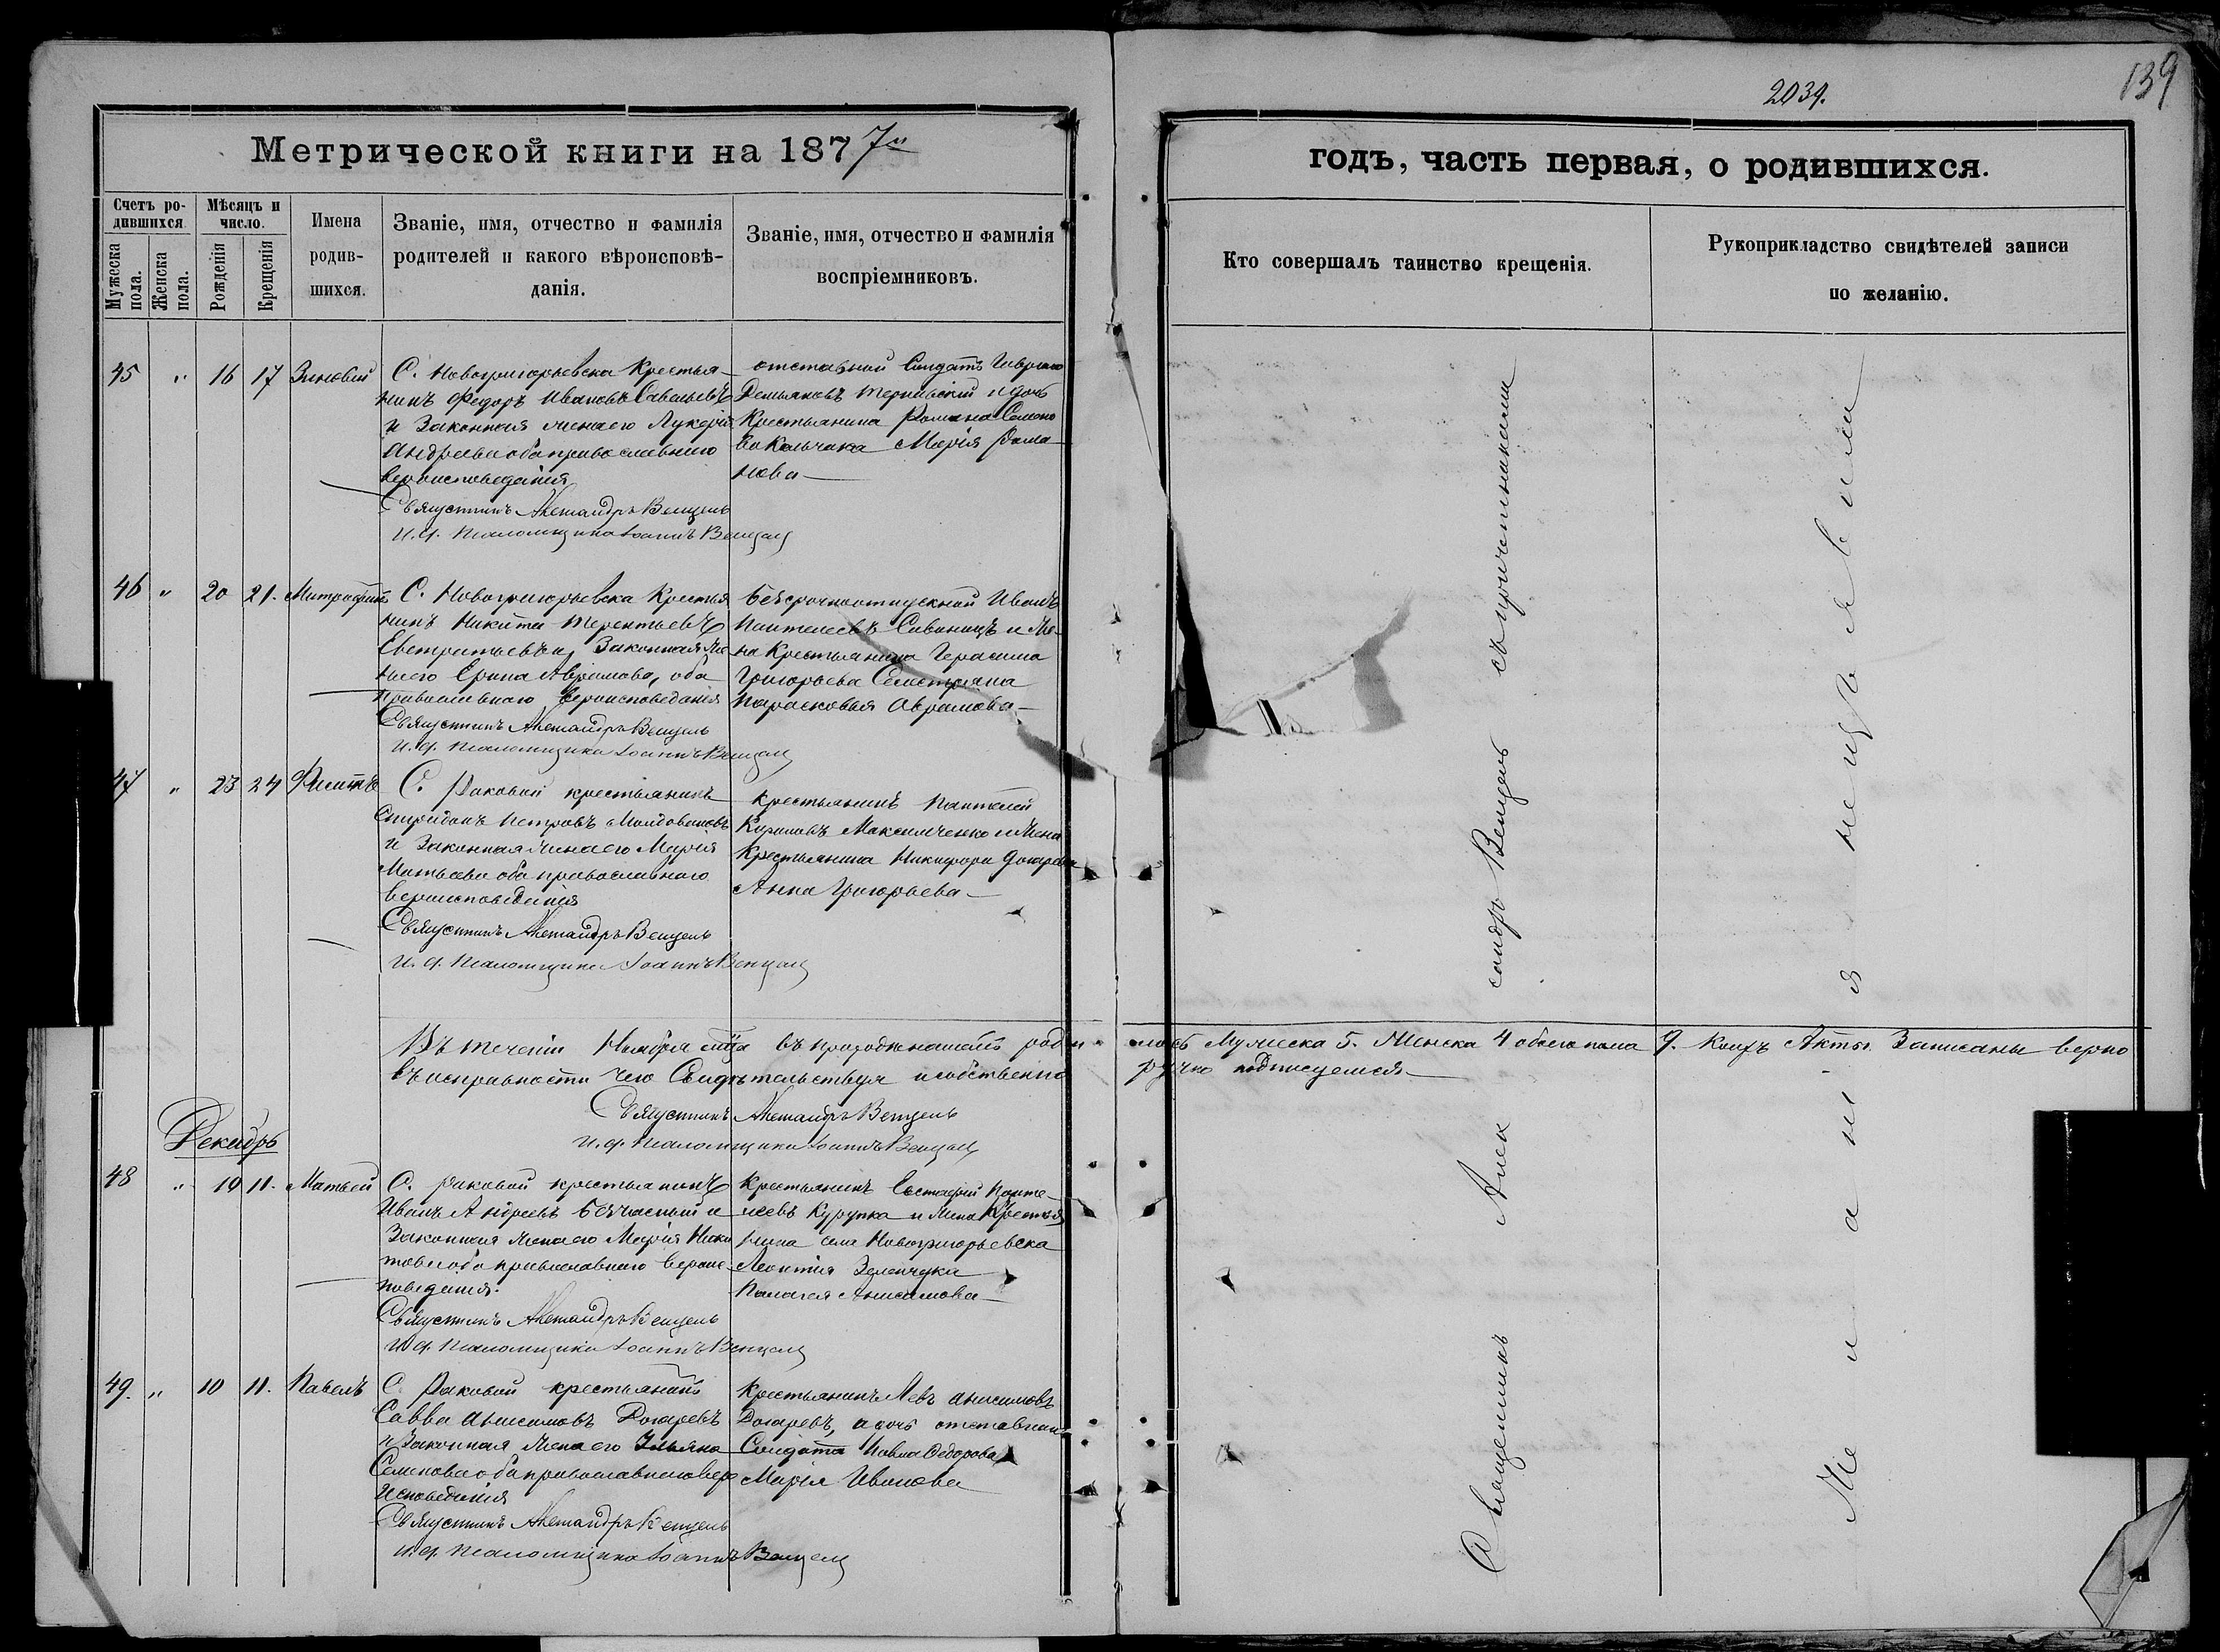 139
2039.
Метрической книги на 1877й
годъ, часть первая, о родившихся.
Счетъ ро-
дившихся.
Мужеска пола.
Женска пола.
Мѣсяцъ и
число.
Рожденія
Крещенія
Имена
родив-
шихся.
Званіе, имя, отчество и фамилія
родителей и какого вѣроисповѣ-
данія.
Званіе, имя, отчество и фамилія
воспріемниковъ.
Кто совершалъ таинство крещенія.
Рукоприкладство свидѣтелей записи
по желанію.
45 " 16 17 Зиновий
С. Новогригорьевска Крестья-
нинъ Федоръ Ивановъ Савельевъ
и Законная жена его Лукерія
Андреева оба православнаго
вероисповеданія
Священникъ Александръ Венцель
и. д. псаломщика Іоаннъ Венцель
отставной Солдатъ
Демьяновъ и дочь
Крестьянина Романа Семено
ва Кольчика Марія Рома
нова
46 " 20 21. Митрофанъ
С. Новогригорьевска Крестья
нинъ Никита Терентьевъ
Евстратьевъ и Законная же
на его Ерина Аврамова, оба
православнаго вероисповеданія
Священникъ Александръ Венцель
и. д. псаломщика Іоаннъ Венцель
Безсрочноотпускной Иванъ
Пантелеевъ и Же-
на Крестьянина Герасима
Григорьева
Парасковья Аврамова
47 " 23 24 Филипъ
С. Раковой крестьянинъ
Спиридонъ Петровъ Молдовановъ
и Законная жена его Марія
Матьеева оба православнаго
вероисповеданія
Священникъ Александръ Венцель
и. д. псаломщика Іоаннъ Венцель
Крестьянинъ Пантелей
Кириловъ Максимченко и Жена
Крестьянина Никифора Догарева
Анна Григорьева
Въ теченіи Ноября м-ца въ приходе нашемъ роди лось Мужеска 5. Женска 4 обоего пола 9. коихъ Акты Записаны верно
въ исправности чего Свидѣтельствуя и собственно ручно подписуемся
Священникъ Александръ Венцель
и. д. псаломщика Іоаннъ Венцель
Декабрь
48 " 10 11. Матьей
С. Раковой крестьянинъ
Иванъ Андреевъ Безчасный и
Законная жена его Марія Ники
това оба православнаго вероис
поведанія.
Священникъ Александръ Венцель
и. д. псаломщика Іоаннъ Венцель
Крестьянинъ Евстафий Панте-
леевъ Курупка и Жена Крестья
нина села Новогригорьевска
Леонтия Зеленчука
Палагея Анисимова
49. " 10 11. Павелъ
С. Раковой крестьянинъ
Савва Анисимовъ Догаревъ
и Законная жена его Ульяна
Семенова оба православнаго веро
исповеданія
Священникъ Александръ Венцель
и. д. псаломщика Іоаннъ Венцель
Крестьянинъ Левъ Анисимовъ
Догаревъ, а дочь отставнаго
Солдата Павла Федорова
Марія Иванова
Священникъ Алек сандръ Венцель съ причетниками
Же л а н і я не изъ я в и л и